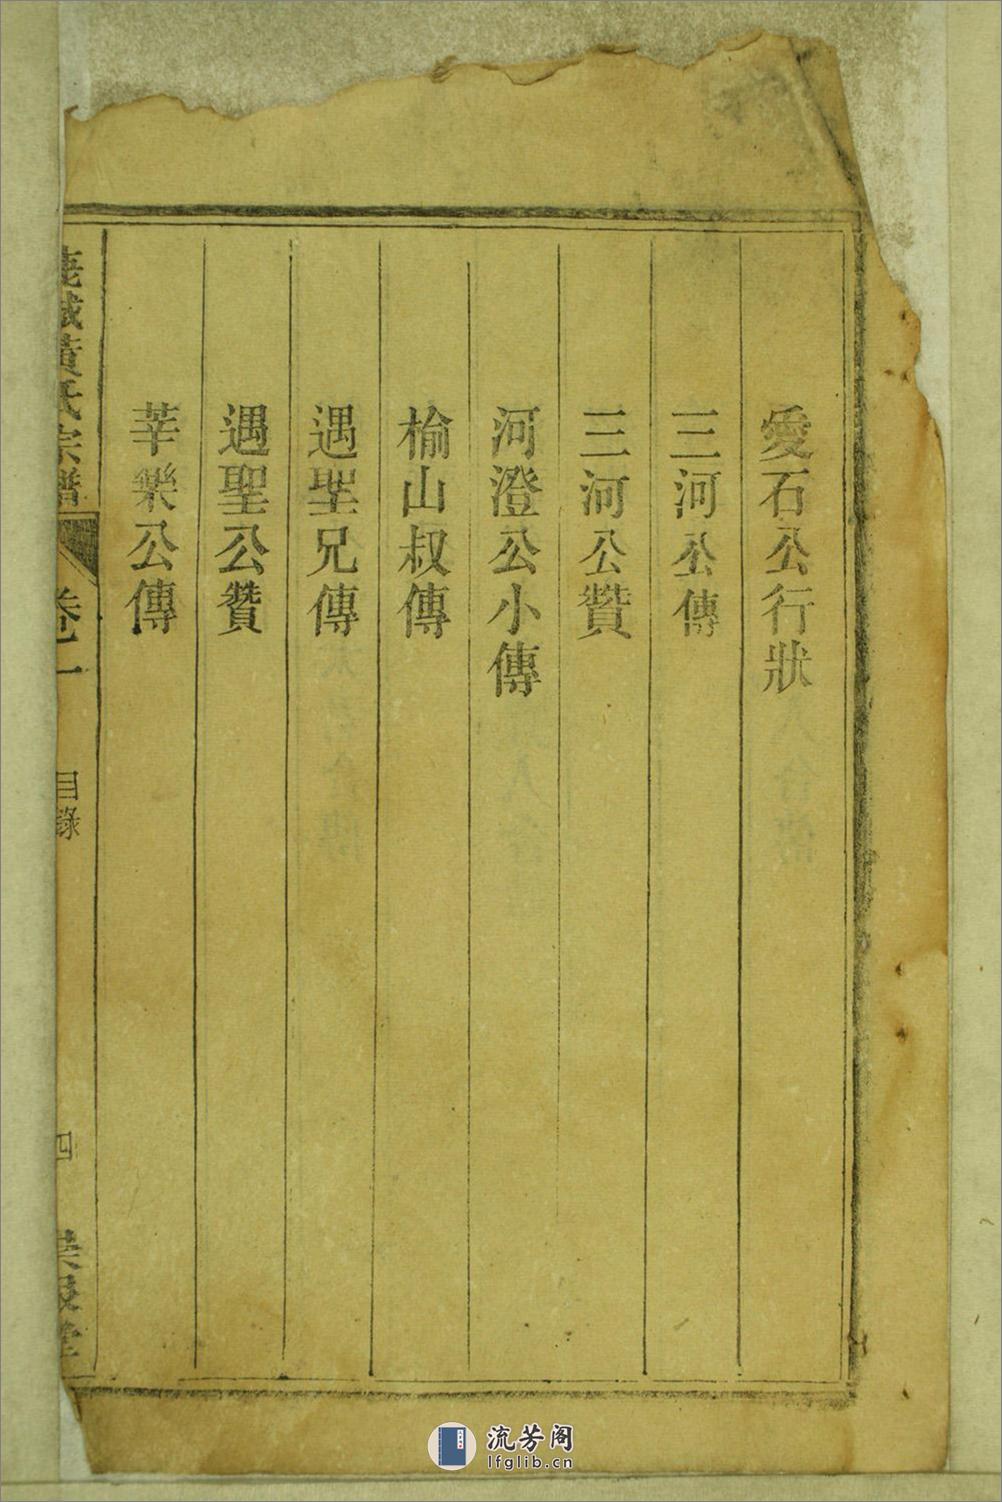 愛石公行狀
三河公傳
三河公贊
河澄公小傳
榆山叔傳
遇聖兄傳
遇聖公贊
莘樂公傳
城黃氏宗譜
卷一
目錄
四
堂
流芳阁
lfglib.cn